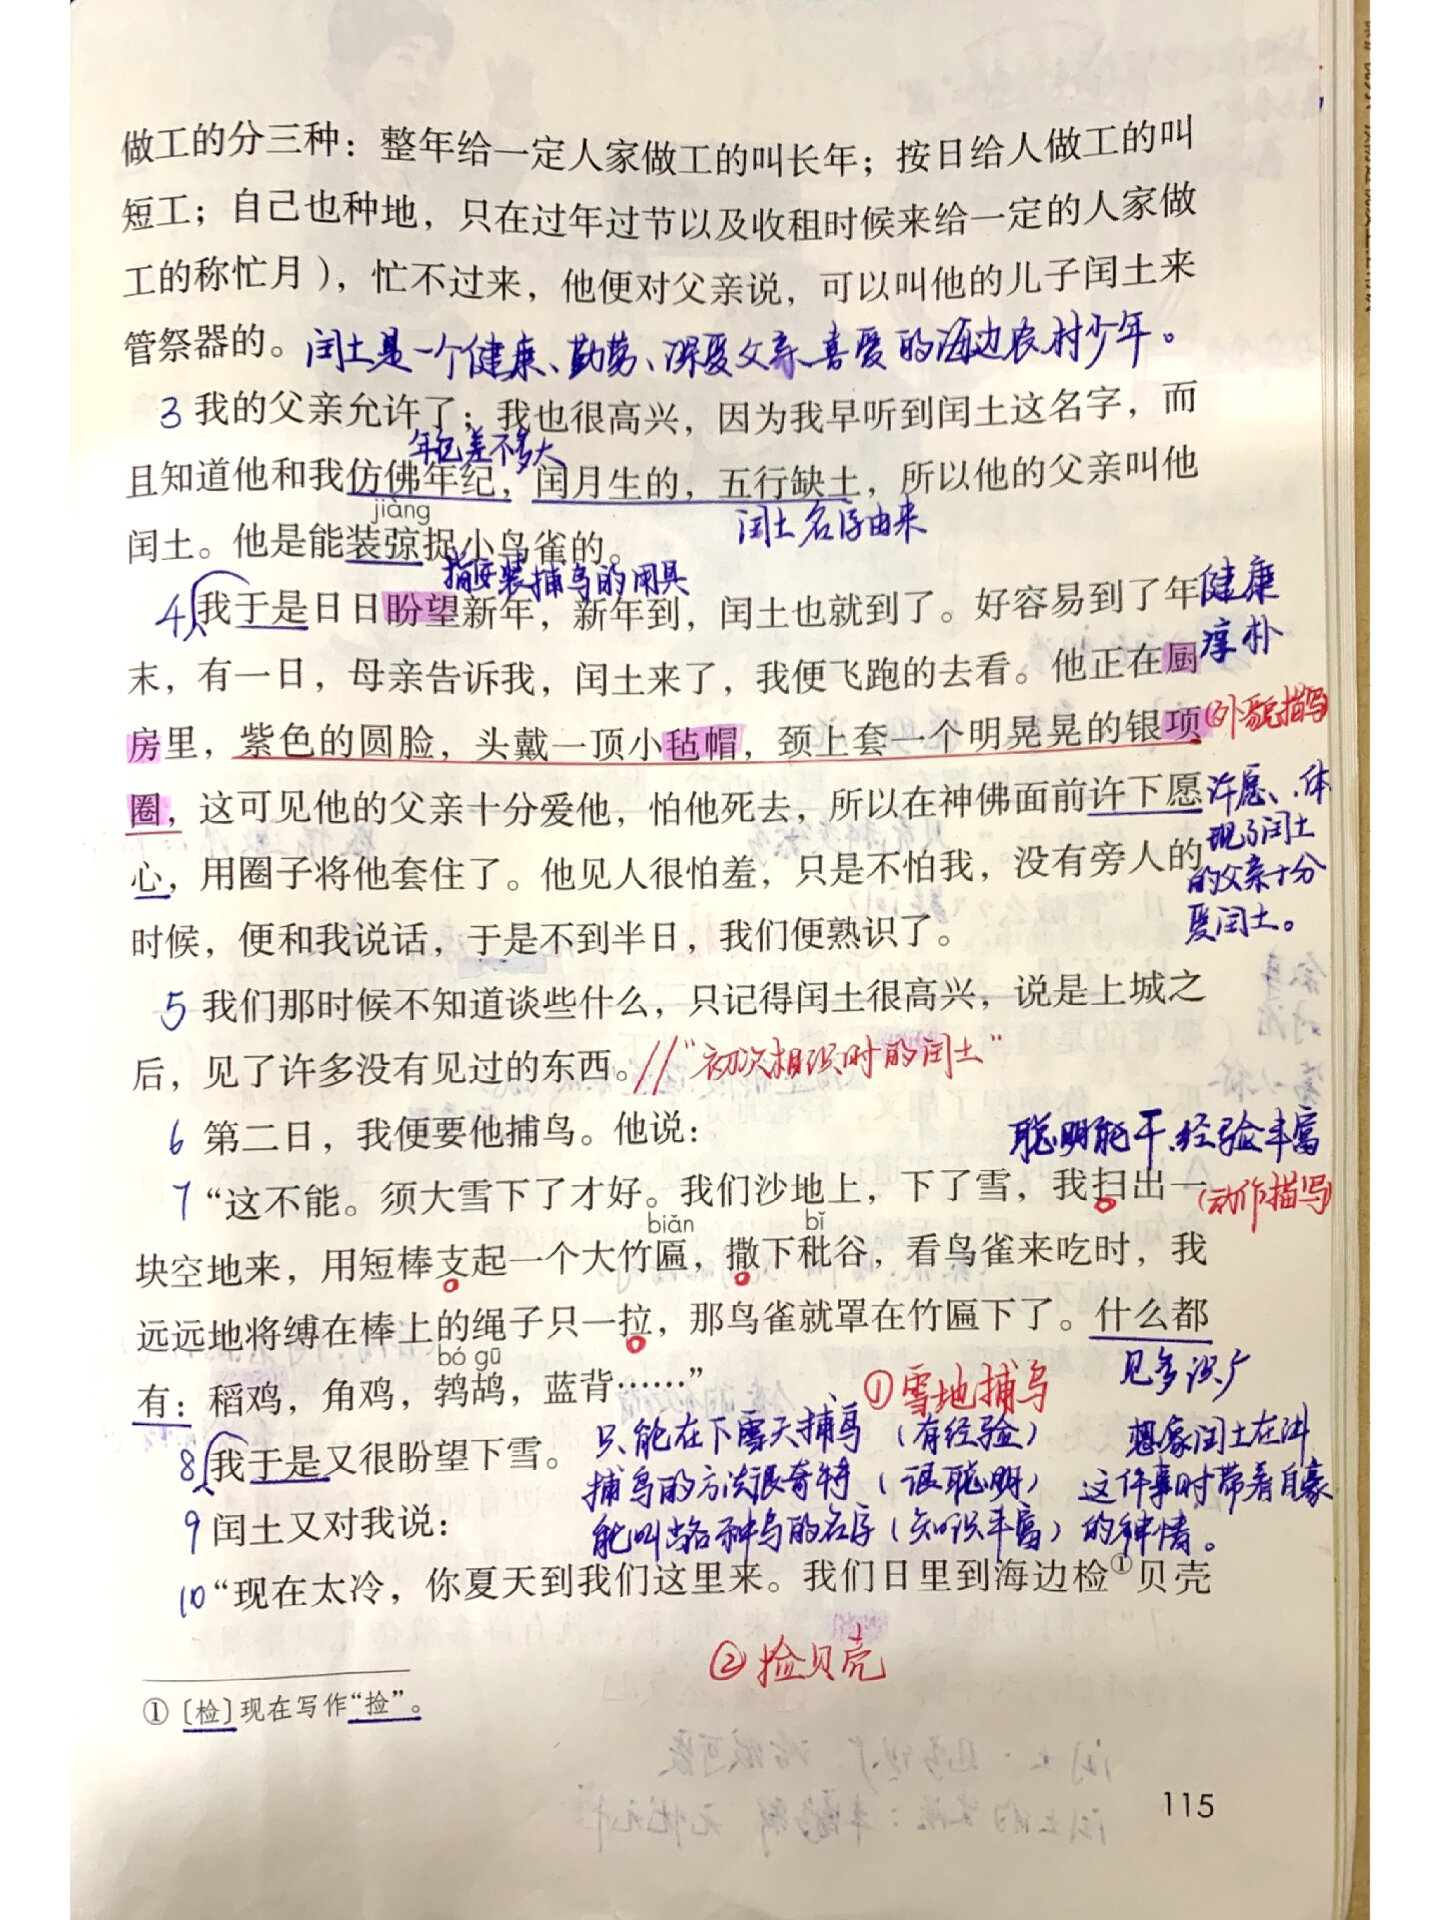 做工的分三种：整年给一定人家做工的叫长年；按日给人做工的叫
短工；自己也种地，只在过年过节以及收租时候来给一定的人家做
工的称忙月），忙不过来，他便对父亲说，可以叫他的儿子闰土来
管祭器的。闰土是一个健康、勤劳、深受父亲喜爱的海边农村少年。
3 我的父亲允许了；我也很高兴，因为我早听到闰土这名字，而
年纪差不多大
且知道他和我仿佛年纪，闰月生的，五行缺土，所以他的父亲叫他
jiàng
闰土名字由来
闰土。他是能装弶捉小鸟雀的。
指安装捕鸟的用具
4 我于是日日盼望新年，新年到，闰土也就到了。好容易到了年
健康
淳朴
末，有一日，母亲告诉我，闰土来了，我便飞跑的去看。他正在厨
房里，紫色的圆脸，头戴一顶小毡帽，颈上套一个明晃晃的银项
(外貌描写)
圈，这可见他的父亲十分爱他，怕他死去，所以在神佛面前许下愿
许愿、体
现了闰土
的父亲十分
爱闰土。
心，用圈子将他套住了。他见人很怕羞，只是不怕我，没有旁人的
时候，便和我说话，于是不到半日，我们便熟识了。
5 我们那时候不知道谈些什么，只记得闰土很高兴，说是上城之
后，见了许多没有见过的东西。//“初次相识时的闰土”
6 第二日，我便要他捕鸟。他说：
聪明能干、经验丰富
7 “这不能。须大雪下了才好。我们沙地上，下了雪，我扫出一
(动作描写)
biǎn bǐ
块空地来，用短棒支起一个大竹匾，撒下秕谷，看鸟雀来吃时，我
远远地将缚在棒上的绳子只一拉，那鸟雀就罩在竹匾下了。什么都
bó gū
见多识广
有：稻鸡，角鸡，鹁鸪，蓝背……”
①雪地捕鸟
8 我于是又很盼望下雪。
只能在下雪天捕鸟（有经验）
捕鸟的方法很奇特（很聪明）
能叫出各种鸟的名字（知识丰富）
想象闰土在讲
这件事时带着自豪
的神情。
9 闰土又对我说：
10 “现在太冷，你夏天到我们这里来。我们日里到海边检①贝壳
②捡贝壳
①〔检〕现在写作“捡”。
115